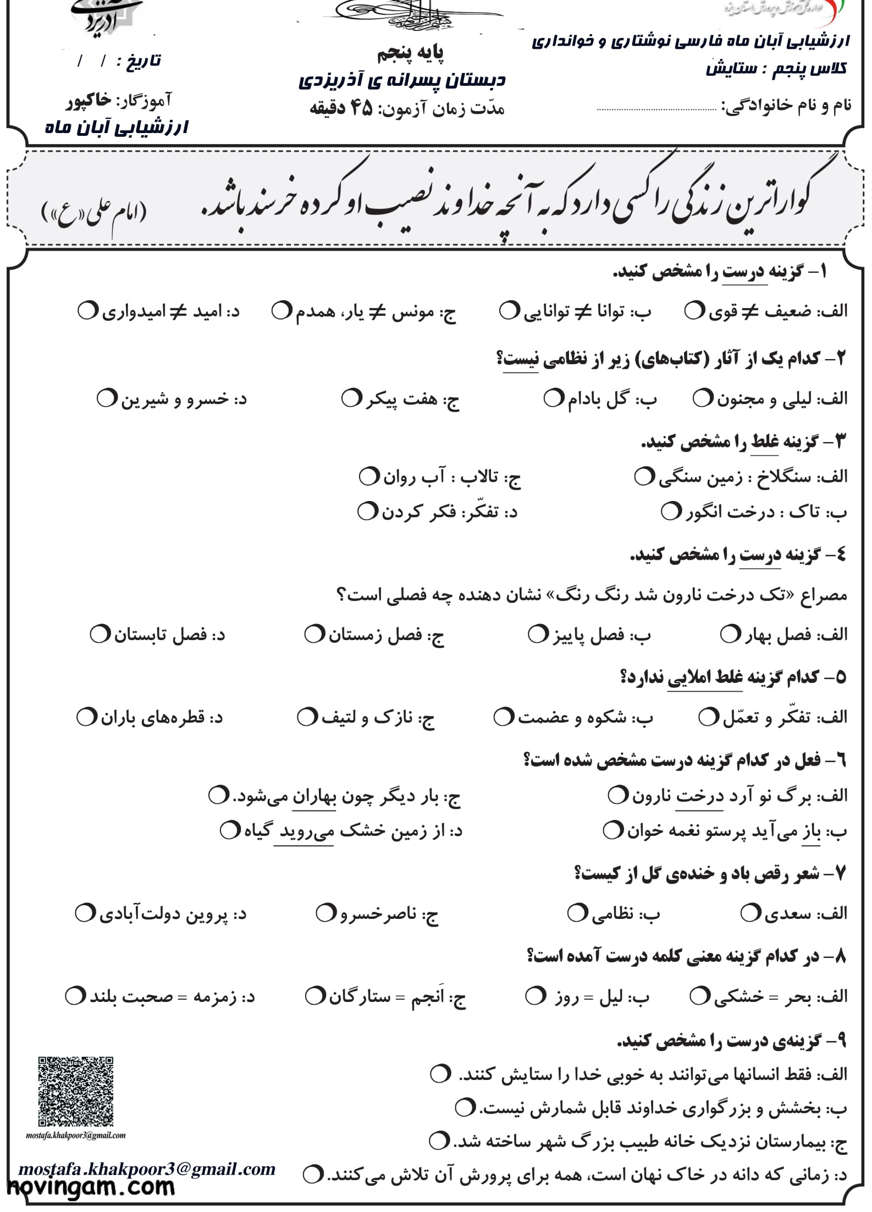 اداره‌ی کل آموزش و پرورش استان یزد
آذریزدی
ارزشیابی آبان ماه فارسی نوشتاری و خوانداری
پایه پنجم
تاریخ : / /
کلاس پنجم : ستایش
دبستان پسرانه ی آذریزدی
آموزگار: خاکپور
نام و نام خانوادگی: ............................
مدّت زمان آزمون: ۴۵ دقیقه
ارزشیابی آبان ماه
گواراترین زندگی را کسی دارد که به آنچه خداوند نصیب او کرده خرسند باشد. (امام علی «ع»)
۱- گزینه درست را مشخص کنید.
الف: ضعیف ≠ قوی ب: توانا ≠ توانایی ج: مونس ≠ یار، همدم د: امید ≠ امیدواری
۲- کدام یک از آثار (کتاب‌های) زیر از نظامی نیست؟
الف: لیلی و مجنون ب: گل بادام ج: هفت پیکر د: خسرو و شیرین
۳- گزینه غلط را مشخص کنید.
الف: سنگلاخ : زمین سنگی ج: تالاب : آب روان
ب: تاک : درخت انگور د: تفکّر: فکر کردن
٤- گزینه درست را مشخص کنید.
مصراع «تک درخت نارون شد رنگ رنگ» نشان دهنده چه فصلی است؟
الف: فصل بهار ب: فصل پاییز ج: فصل زمستان د: فصل تابستان
۵- کدام گزینه غلط املایی ندارد؟
الف: تفکّر و تعمّل ب: شکوه و عضمت ج: نازک و لتیف د: قطره‌های باران
٦- فعل در کدام گزینه درست مشخص شده است؟
الف: برگ نو آرد درخت نارون ج: بار دیگر چون بهاران می‌شود.
ب: باز می‌آید پرستو نغمه خوان د: از زمین خشک می‌روید گیاه
۷- شعر رقص باد و خنده‌ی گل از کیست؟
الف: سعدی ب: نظامی ج: ناصرخسرو د: پروین دولت‌آبادی
۸- در کدام گزینه معنی کلمه درست آمده است؟
الف: بحر = خشکی ب: لیل = روز ج: اَنجم = ستارگان د: زمزمه = صحبت بلند
۹- گزینه‌ی درست را مشخص کنید.
الف: فقط انسانها می‌توانند به خوبی خدا را ستایش کنند.
ب: بخشش و بزرگواری خداوند قابل شمارش نیست.
ج: بیمارستان نزدیک خانه طبیب بزرگ شهر ساخته شد.
د: زمانی که دانه در خاک نهان است، همه برای پرورش آن تلاش می‌کنند.
mostafa.khakpoor3@gmail.com
mostafa.khakpoor3@gmail.com
novingam.com